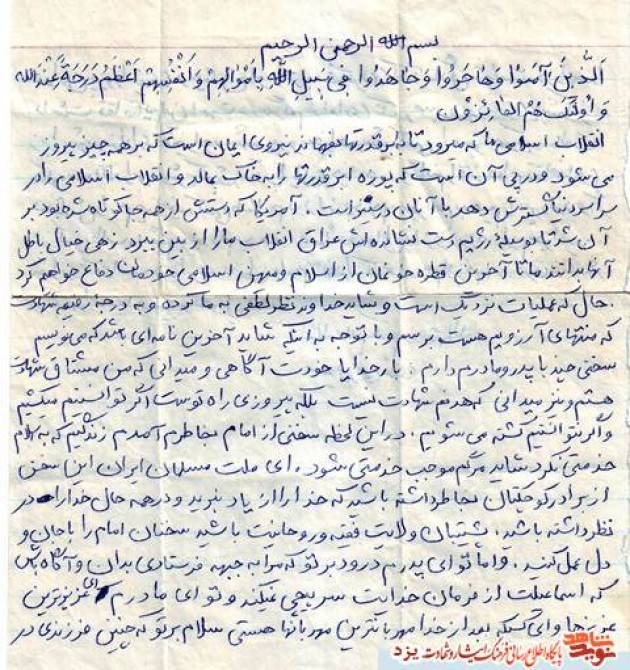 بسم الله الرحمن الرحیم
اَلَّذینَ آمَنوُا وَ هاجَروُا وَ جاهَدُوا فی سَبیلِ اللهِ بِاَمْوالِهِمْ وَ اَنْفُسِهِمْ اَعْظَمُ دَرَجَةً عِنْدَ الله
وَ اُولئِکَ هُمُ الفائِزُون
انقلاب اسلامی ما که میرود تا ابرقدرتها بفهماند نیروی ایمان است که بر همه چیز پیروز
می شود و در پی آن است که پوزه ابرقدرتها را به خاک بمالد و انقلاب اسلامی را در
سراسر دنیا گسترش دهد با آنان در ستیز است . آمریکا که دستش از همه جا کوتاه شده بود بر
آن شد تا بوسیلهٔ رژیم دست نشانده اش عراق انقلاب ما را از بین ببرد زهی خیال باطل
آنها بدانند ما تا آخرین قطره خونمان از اسلام و میهن اسلامی خودمان دفاع خواهیم کرد
. حال که عملیات نزدیک است و شاید خداوند نظر لطفی به ما کرده و به درجهٔ رفیعه شهادت
که منتهای آرزویم هست برسم و با توجه به اینکه شاید آخرین نامه ای باشد که می نویسم
سخنی چند با پدر و مادرم دارم : بار خدایا خودت آگاهی و میدانی که من مشتاق شهادت
هستم و نیز میدانی که هدفم شهادت نیست بلکه پیروزی راه توست اگر توانستیم میکشیم
و اگر نتوانستیم کشته می شویم . در این لحظه سخنی از امام بخاطرم آمد زندگیم که به اسلام
خدمتی نکرد شاید مرگم موجب خدمتی شود . ای ملت مسلمان ایران این سخن
از برادر کوچکتان بخاطر داشته باشید که خدا را از یاد نبرید و در همه حال خدا را در
نظر داشته باشید . پشتیبان ولایت فقیه و روحانیت باشید سخنان امام را با جان و
دل عمل کنید . و اما تو ای پدرم درود بر تو که مرا به جبهه فرستادی بدان و آگاه باش
که اسماعیلت از فرمان خدایت سرپیچی نمیکند و تو ای مادرم ای عزیزترین
عزیزها و ای کسیکه بعد از خدا مهربانترین مهربانها هستی سلام بر تو که چنین فرزندی در
نوید شاهد
پایگاه اطلاع رسانی فرهنگ ایثار و شهادت یزد